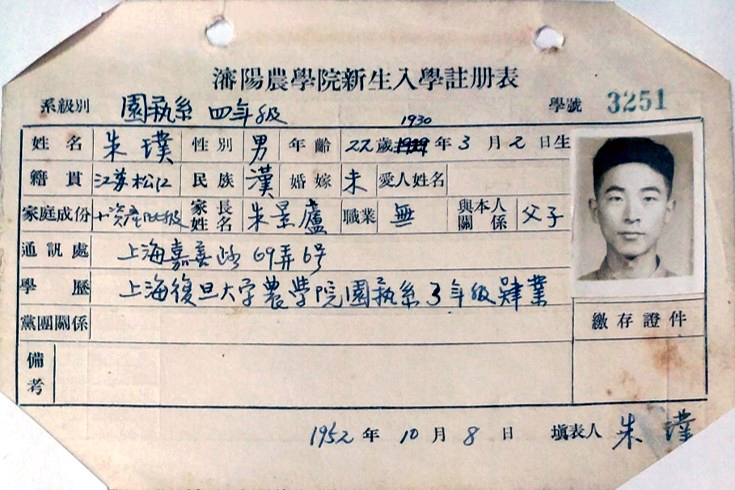 瀋陽農學院新生入學註册表
系級別 園艺系 四年級 學號 3251
1930
姓名 朱璞 性別 男 年齡 22歲 1929 年 3 月 2 日生
籍貫 江苏松江 民族 漢 婚嫁 未 愛人姓名
家庭成份 小資產阶級 家長姓名 朱景廬 職業 無 與本人關係 父子
通訊處 上海嘉善路69弄6号
學歷 上海復旦大学農學院園艺系3年級肄業
黨團關係 繳存證件
備考
1952 年 10 月 8 日 填表人 朱璞